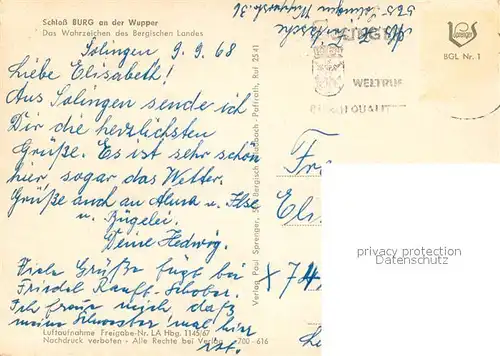 Schloß BURG an der Wupper
Das Wahrzeichen des Bergischen Landes
Solingen 9. 9. 68
Liebe Elisabeth!
Aus Solingen sende ich
Dir die herzlichsten
Grüße. Es ist sehr schön
hier, sogar das Wetter.
Grüße auch an Alma u. Ilse
u. Zügelei.
Deine Hedwig.
Viele Grüße fügt bei
Friedel Rauft-Schober.
Ich freue mich, daß
meine Schwester mal hier
ist.
Luftaufnahme Freigabe-Nr. LA Hbg. 1145/67
Nachdruck verboten - Alle Rechte bei Verlag 700 - 616
Verlag Paul Sprenger, Bergisch Gladbach-Paffrath, Ruf 2541
565 Solingen
WELTRUF
DURCH QUALIT
Sprenger
BGL Nr. 1
Fr
Eli
X 74
privacy protection
Datenschutz